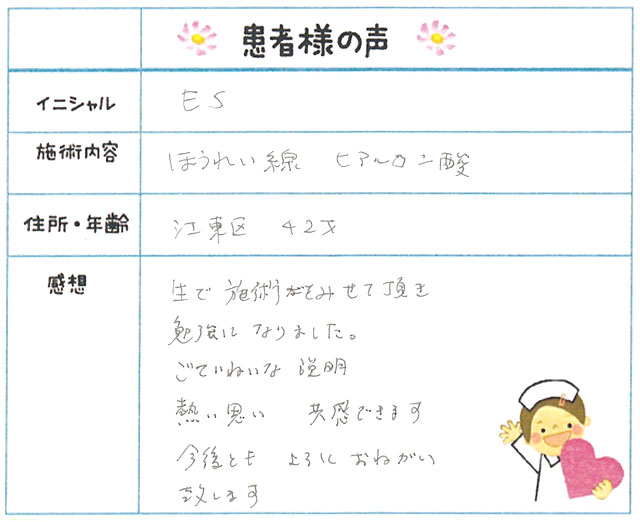 患者様の声
イニシャル ES
施術内容 ほうれい線 ヒアルロン酸
住所・年齢 江東区 42才
感想 生で施術をみせて頂き
勉強になりました。
ごていねいな 説明
熱い思い 共感できます
今後とも よろしくおねがい
致します